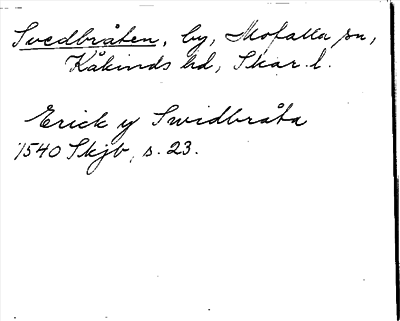 Svedbråten, by, Mofalla sn,
Kåkinds hd, Skar. l.
Erick y Swidbråta
1540 Skjb, s. 23.